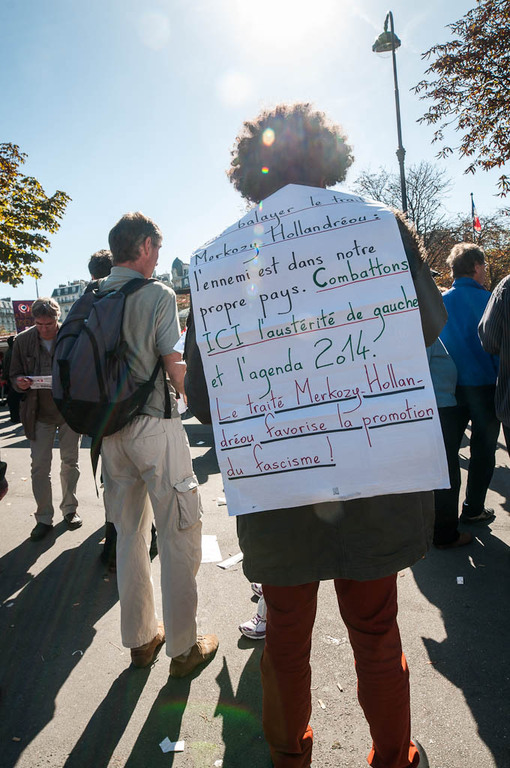 balayer le
Merkozy-Hollandréou:
l'ennemi est dans notre
propre pays. Combattons
ICI l'austérité de gauche
et l'agenda 2014.
Le traité Merkozy-Hollan-
dréou favorise la promotion
du fascisme !